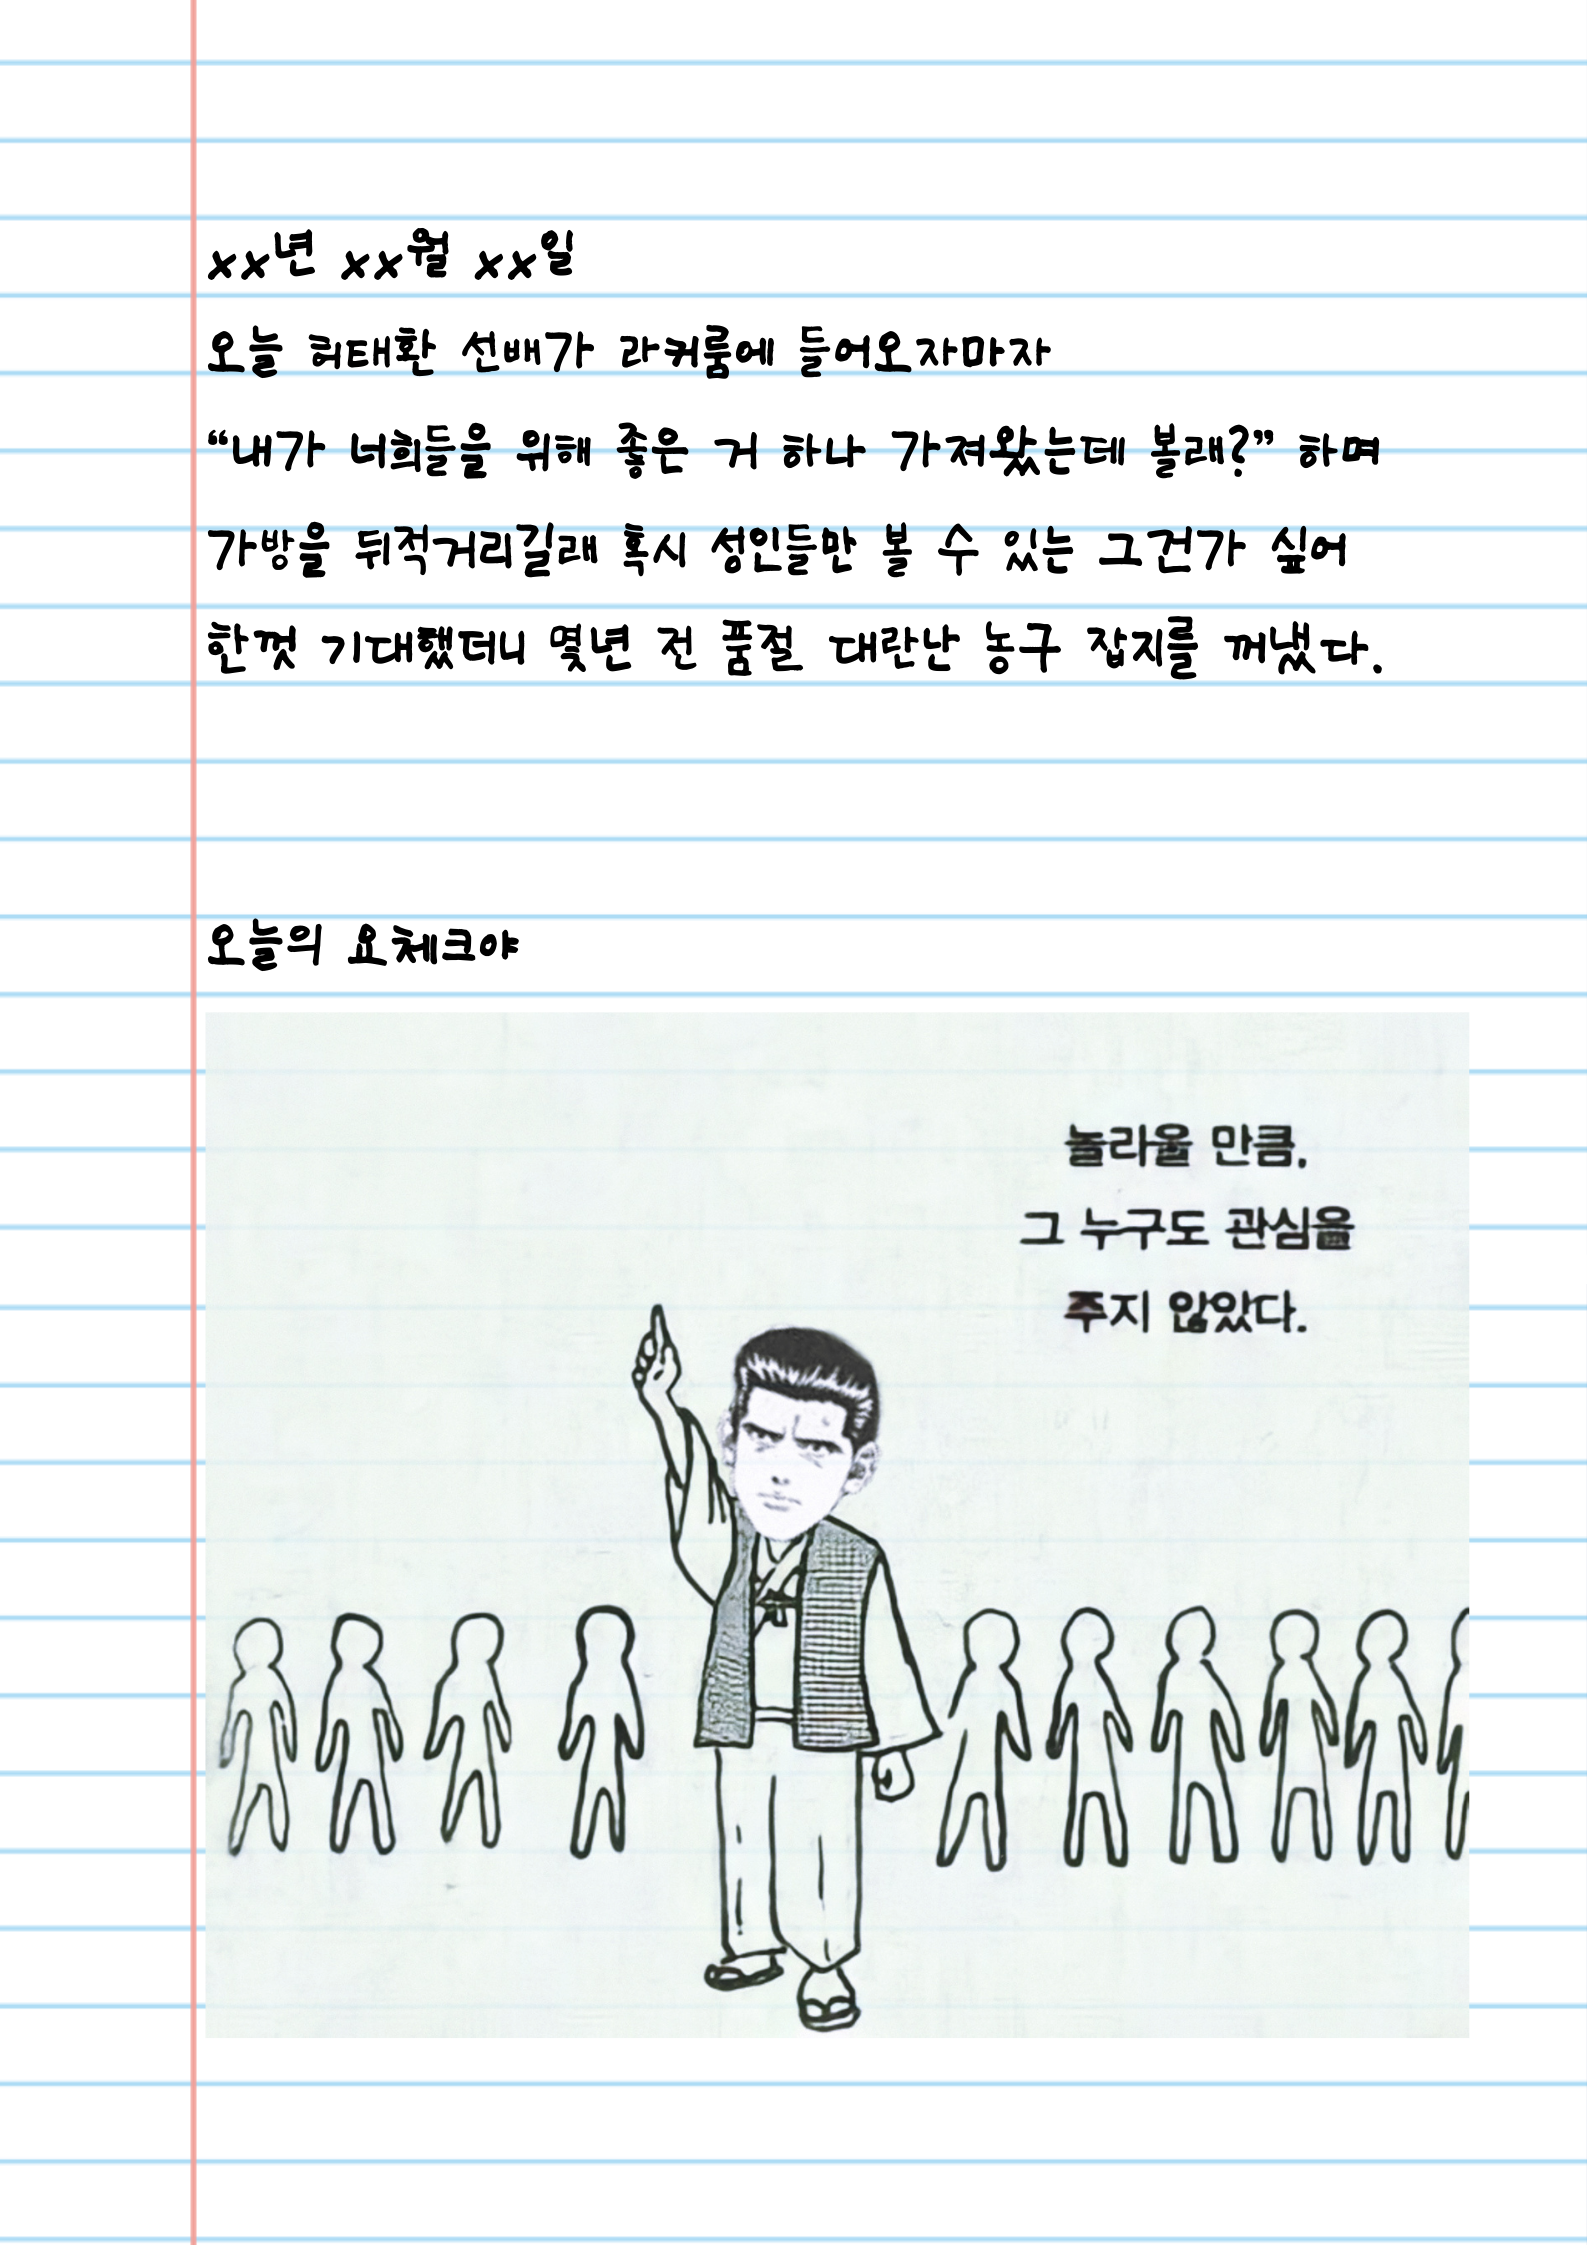 xx년 xx월 xx일
오늘 허태환 선배가 라커룸에 들어오자마자
“내가 너희들을 위해 좋은 거 하나 가져왔는데 볼래?” 하며
가방을 뒤적거리길래 혹시 성인들만 볼 수 있는 그건가 싶어
한껏 기대했더니 몇년 전 품절 대란난 농구 잡지를 꺼냈다.
오늘의 요체크야
놀라울 만큼,
그 누구도 관심을
주지 않았다.